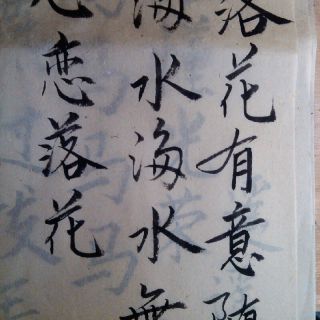 落花有意随
海水海水無
心恋落花